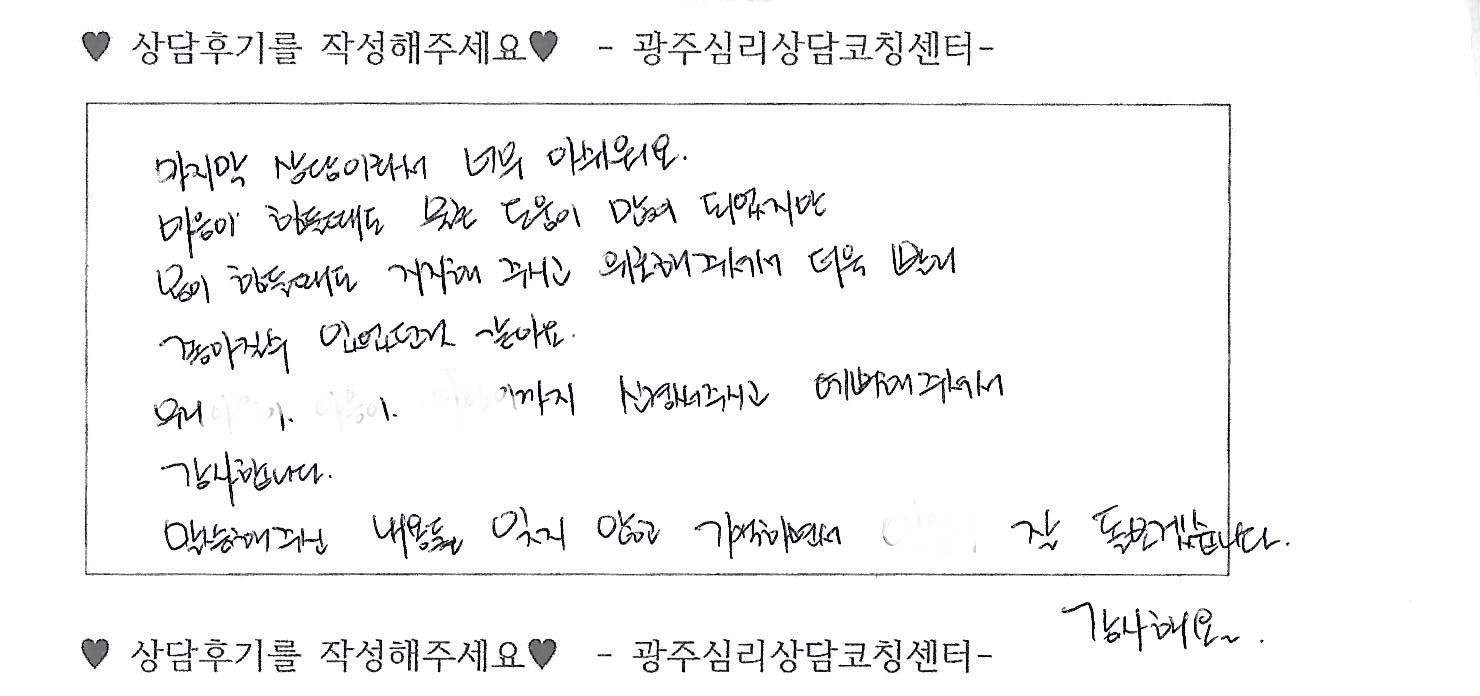 ♥ 상담후기를 작성해주세요♥ - 광주심리상담코칭센터-
마지막 상담이라서 너무 아쉬워요.
마음이 힘들때도 오는 도움이 많이 되었지만
몸이 힘들때도 걱정해 주시고 위로해주셔서 더욱 빨리
좋아질수 있었던것 같아요.
우리 까지 신경써주시고 예뻐해주셔서
감사합니다.
말씀해주신 내용들 잊지 않고 기억하면서 잘 돌보겠습니다.
감사해요~.
♥ 상담후기를 작성해주세요♥ - 광주심리상담코칭센터-